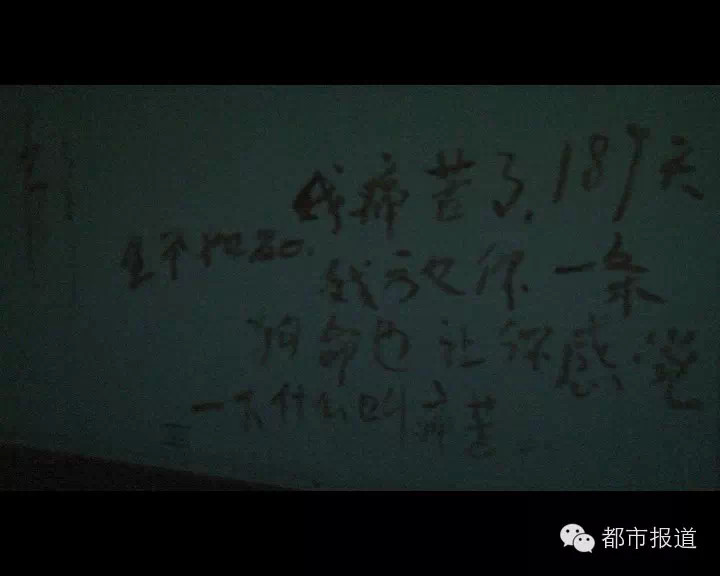 我痛苦了,189天
生不如死.
我放你一条
狗命也让你感觉
一下什么叫痛苦
都市报道